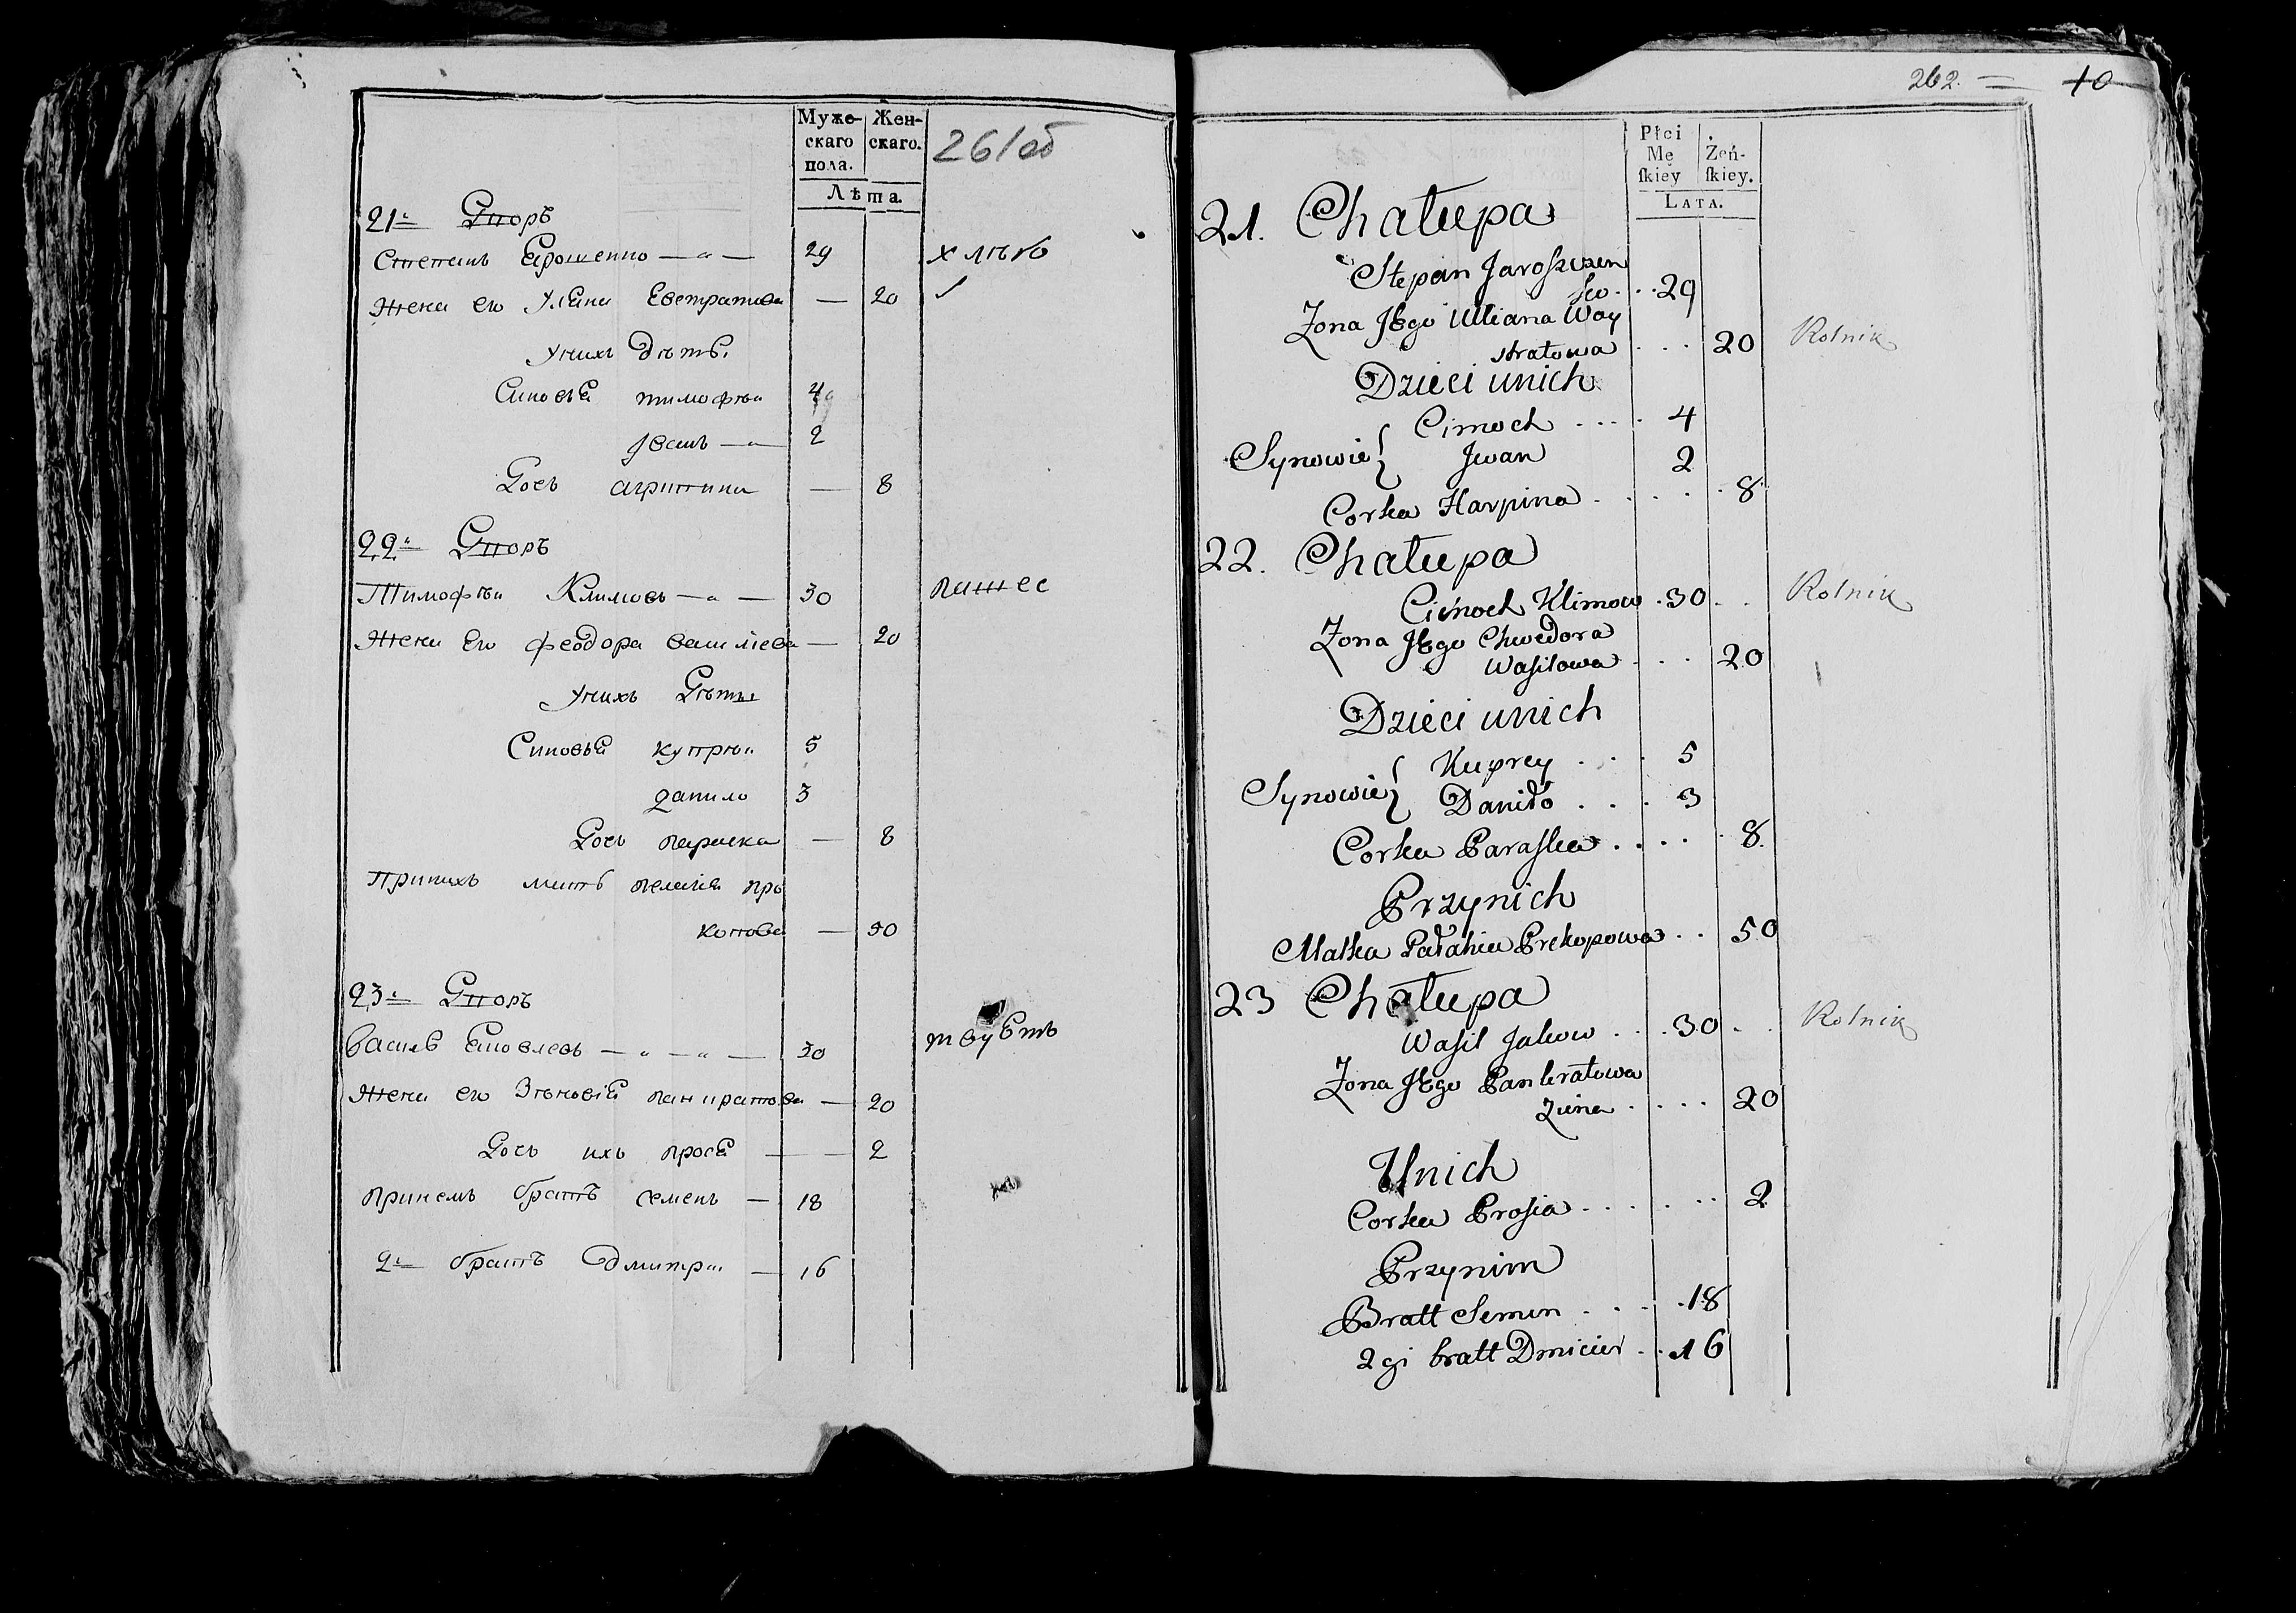 Муже-
скаго
пола.
Жен-
скаго.
Лѣта.
261 об
21. Дворъ
Степанъ Ерошенко — " — 29
хлѣб
Жена его Уліана Евстратова — 20
У нихъ дѣти
Синовья тимофѣи 4
Иванъ — 2
Дочь агрипина — 8
22. Дворъ
Тимофѣи Климовъ — " — 30
пашес
Жена его феодора василіева — 20
У нихъ Дѣти
Синовья купрѣи 5
данило 3
Дочь параска — 8
При нихъ мать пелагія про
копова — 50
23. Дворъ
Василь Яковлевъ — " — " — 30
Жена его Зѣновія панкратова — 20
Дочь ихъ прося — 2
При немъ братъ семенъ — 18
2й братъ дмитри — 16
262. 10
Płci
Mę
skiey
Żeń-
skiey.
LATA.
21. Chałupa
Stepan Jaroszczen
ko 29
Zona JEgo Ulliana Way
stratowa 20 Rolnik
Dzieci unich
Cimoch 4
Synowie { Jwan 2
Corka Harpina 8
22. Chałupa
Cimoch Klimow 30 Rolnik
Zona JEgo Chwedora
Wasilowa 20
Dzieci unich
Kuprey 5
Synowie { Daniło 3
Corka Paraska 8
Przynich
Matka Pałahia Prokopowa 50
23 Chałupa
Wasil Jakow 30 Rolnik
Zona JEgo Pankratowa
Zina 20
Unich
Corka Prosia 2
Przynim
Bratt Semen 18
2gi bratt Dmicier 16